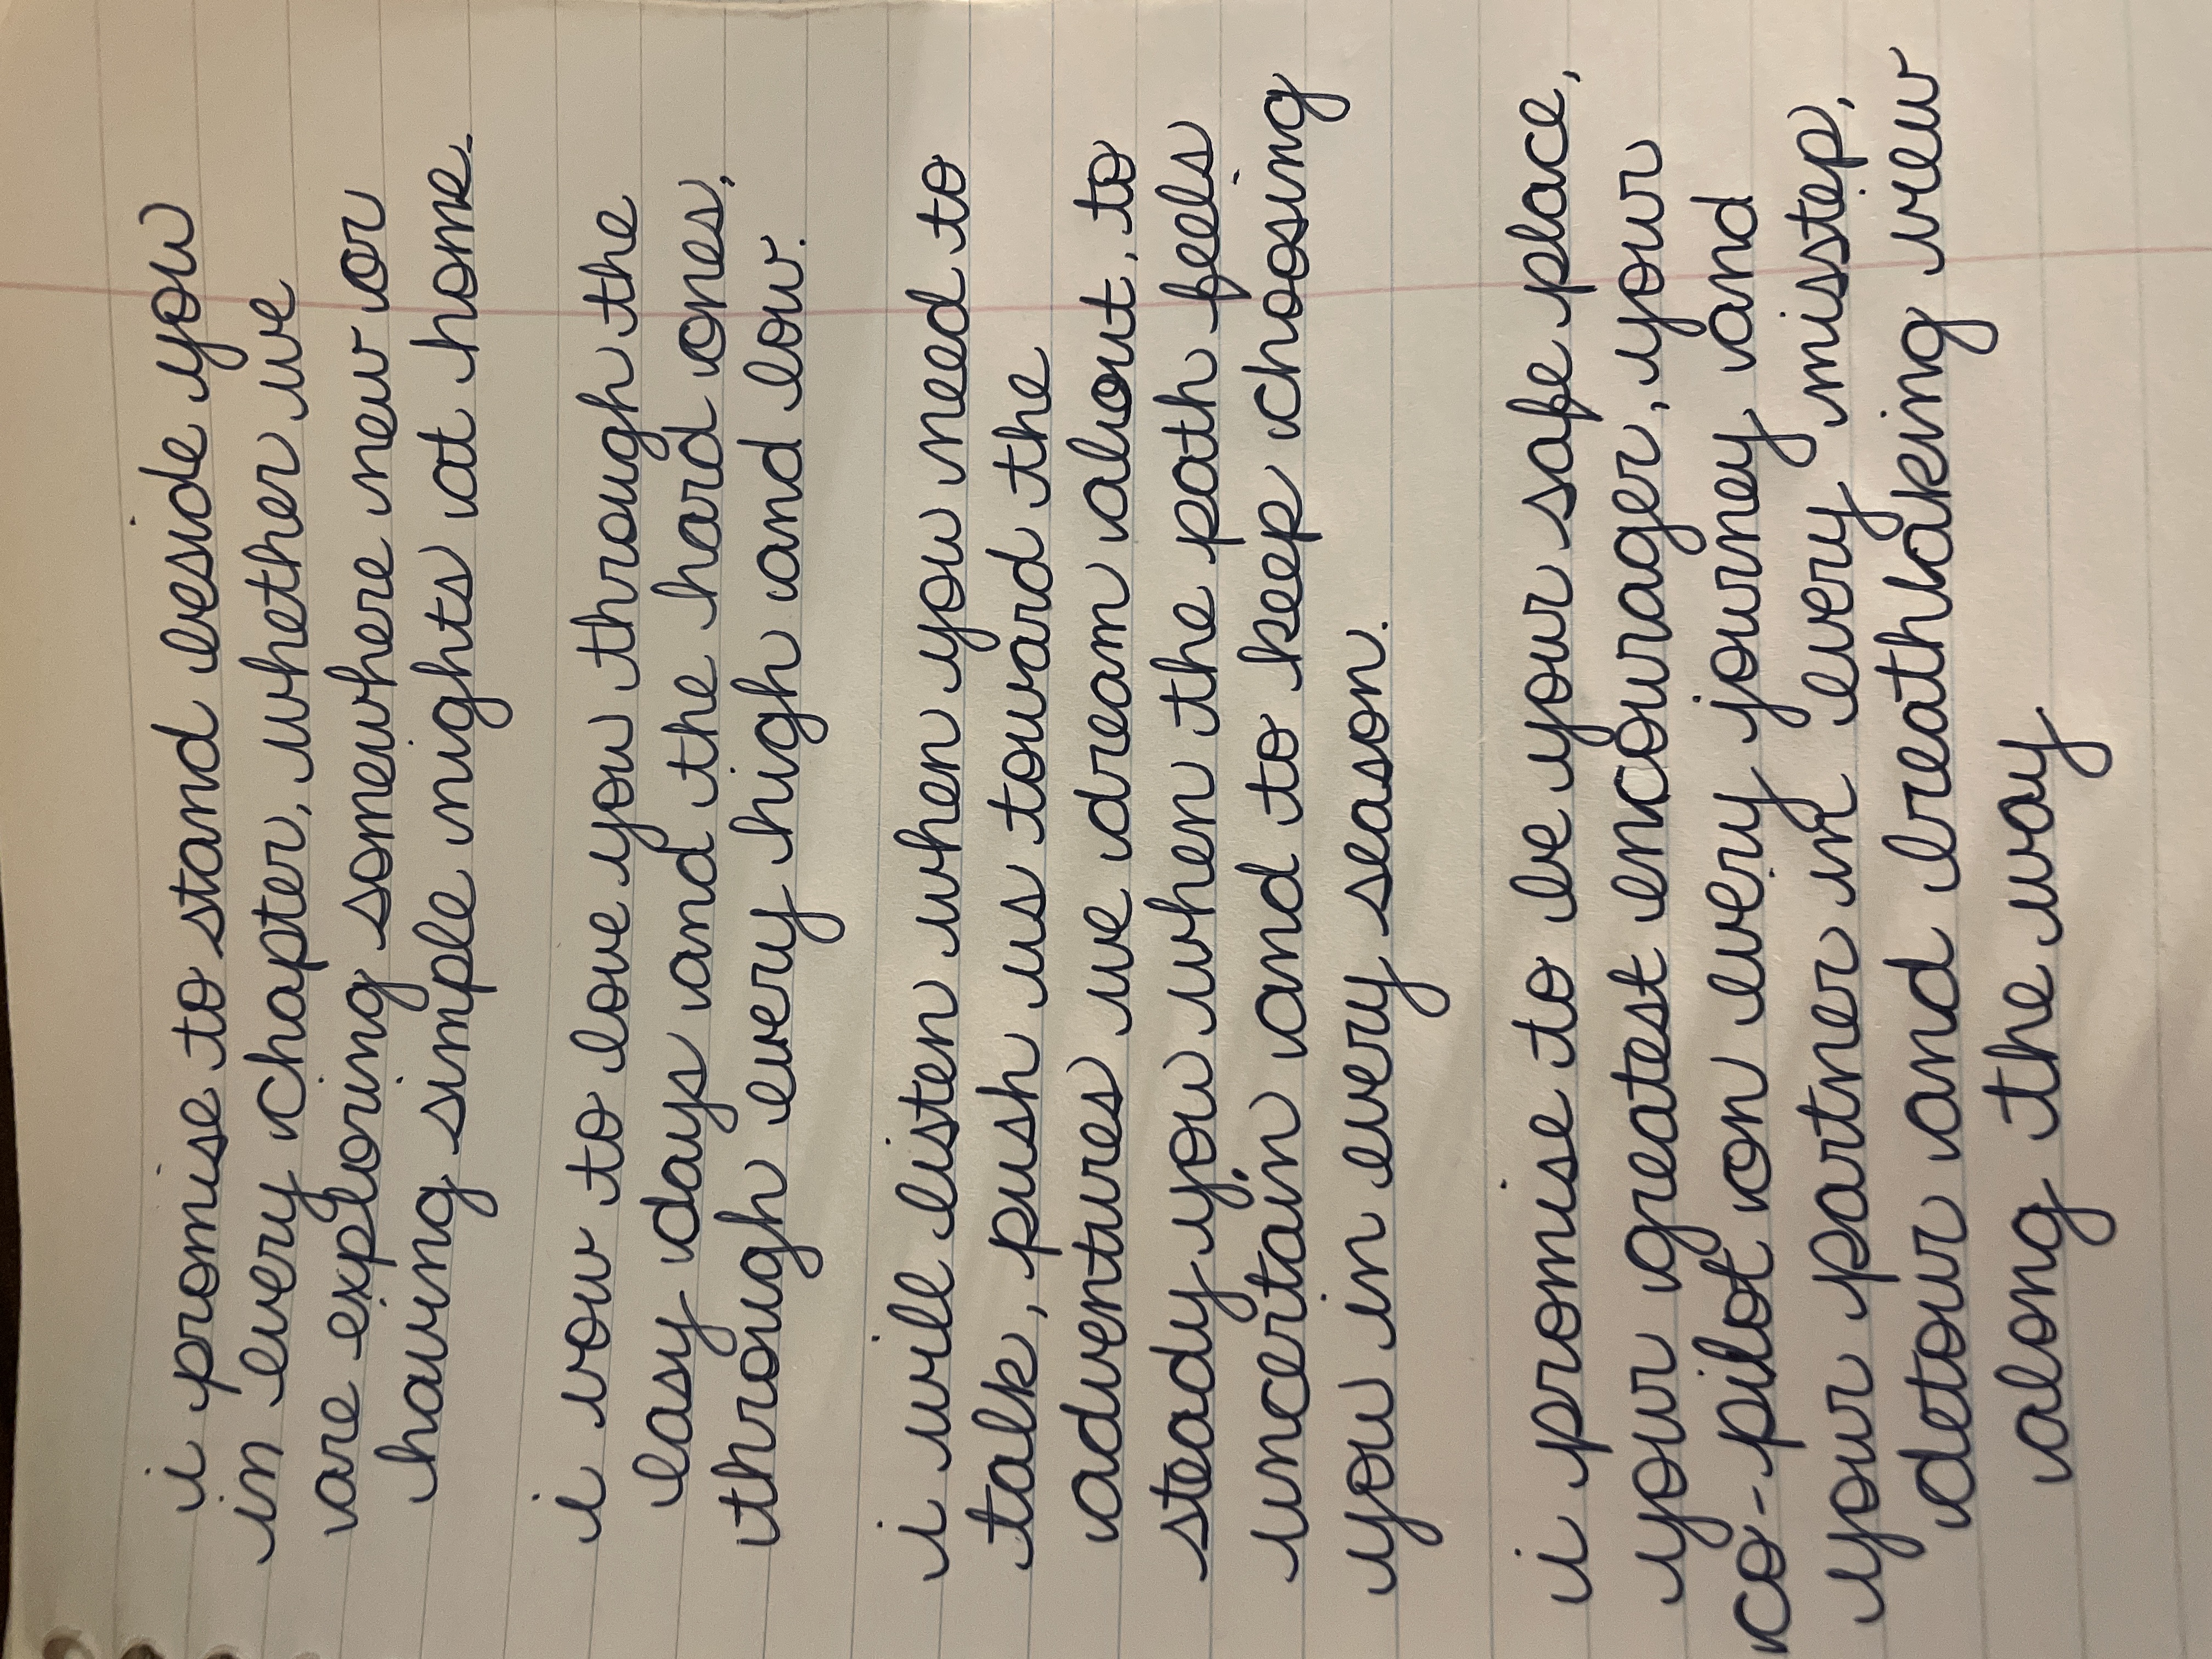 i promise to stand beside you
in every chapter, whether we
are exploring somewhere new or
having simple nights at home.
i vow to love you through the
easy days and the hard ones,
through every high and low.
i will listen when you need to
talk, push us toward the
adventures we dream about, to
steady you when the path feels
uncertain and to keep choosing
you in every season.
i promise to be your safe place,
your greatest encourager, your
co-pilot on every journey and
your partner in every misstep,
detour and breathtaking view
along the way